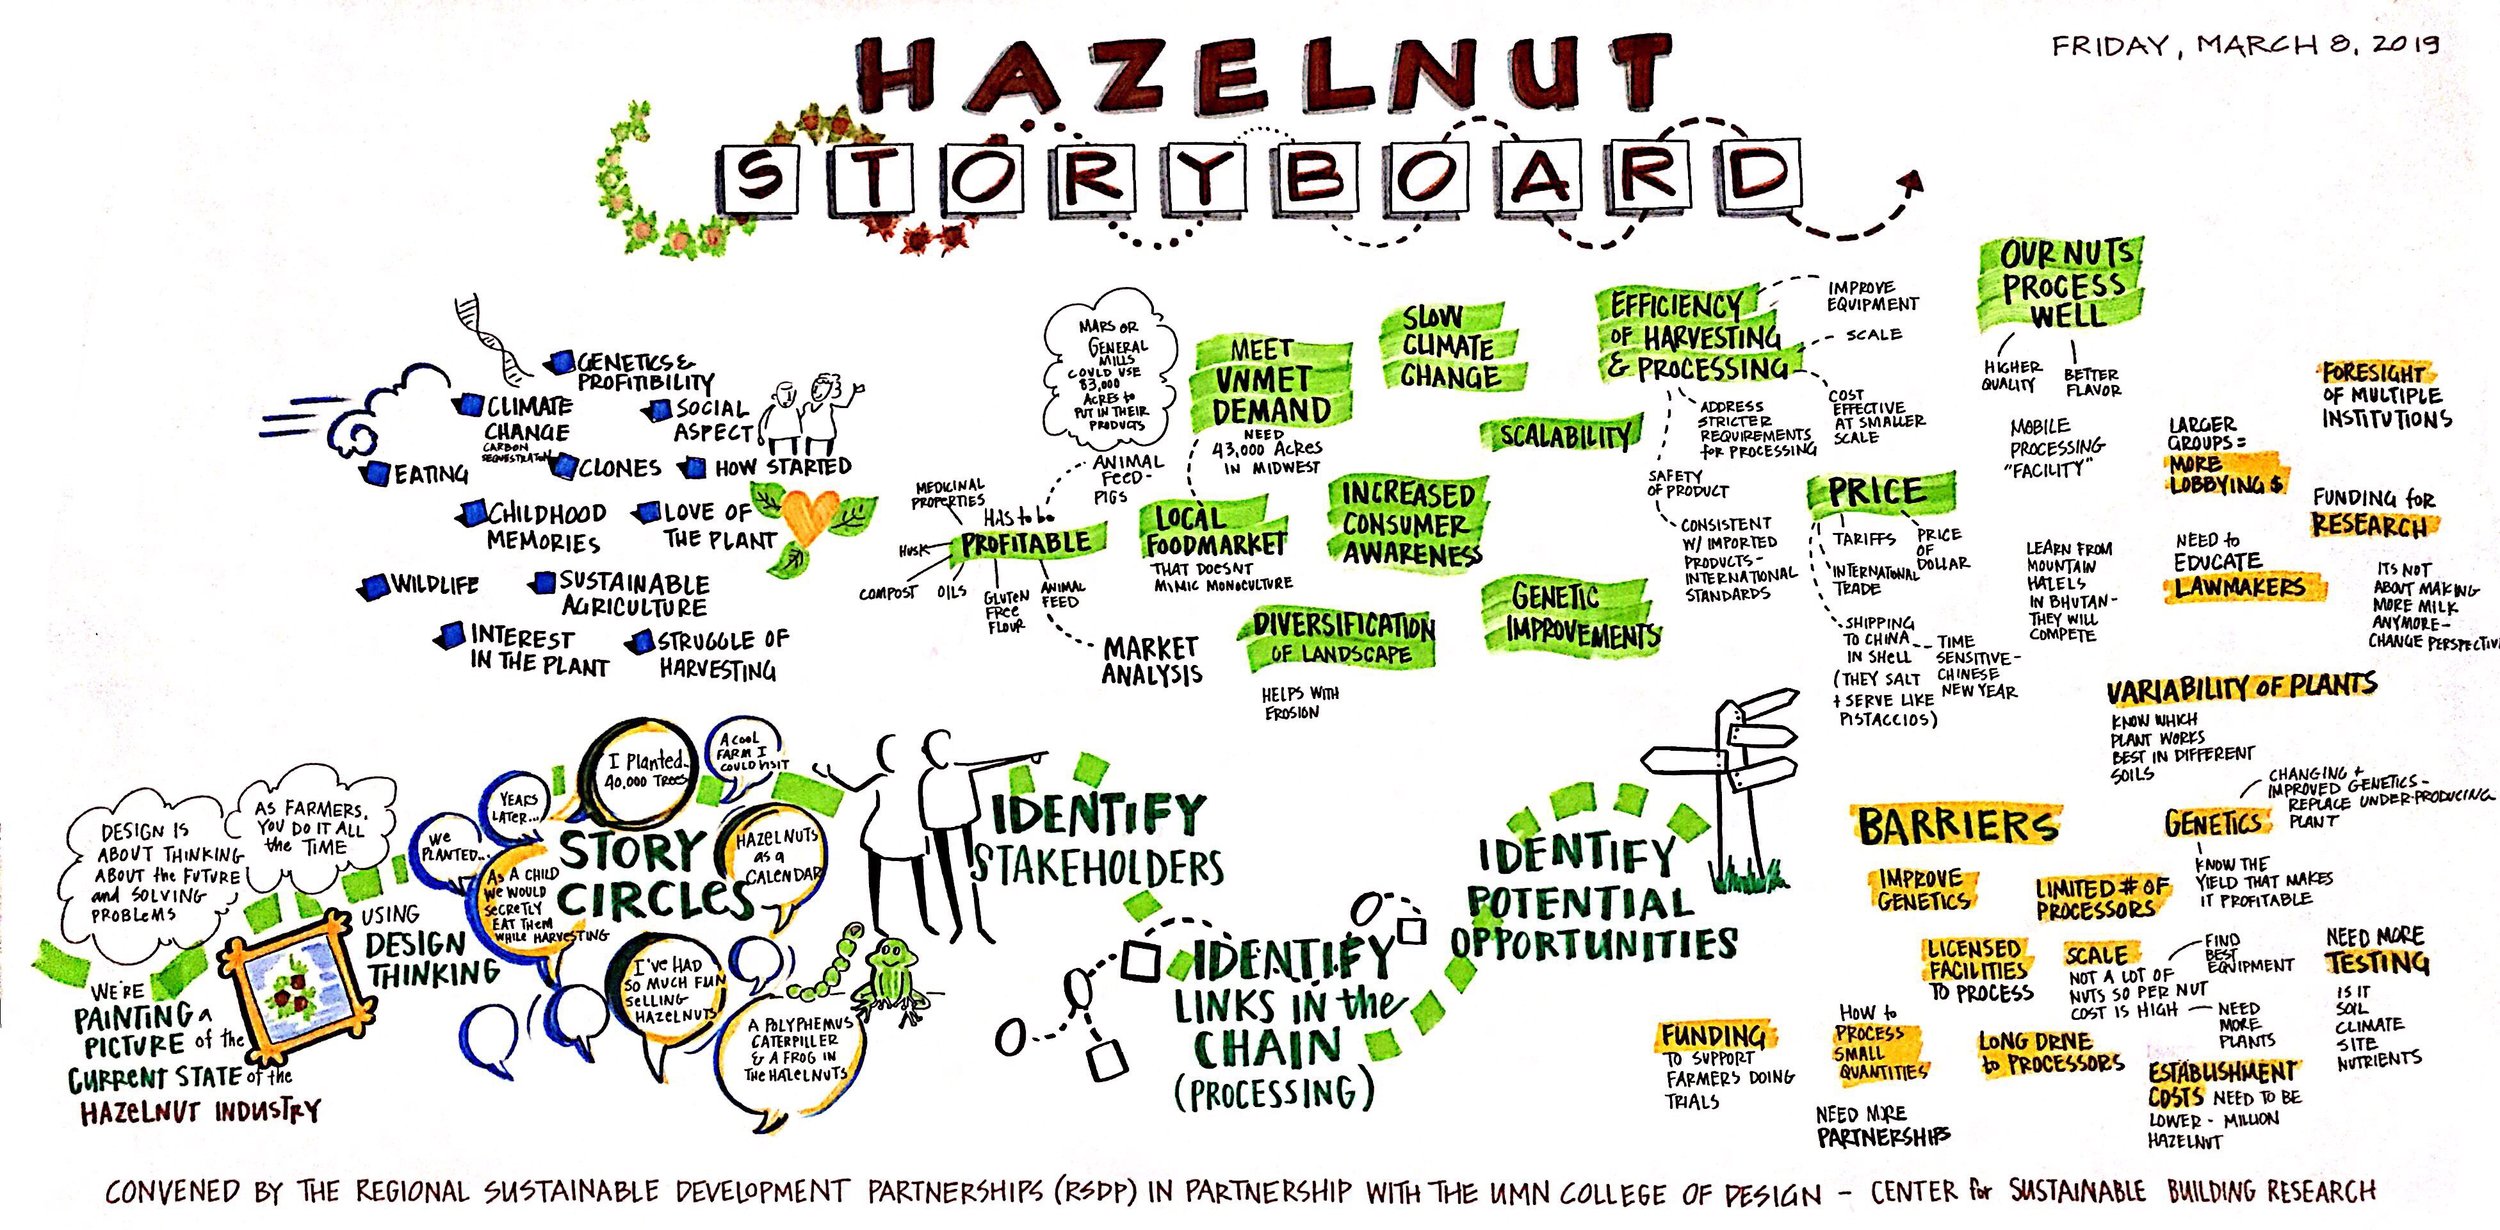 HAZELNUT
STORYBOARD
FRIDAY, MARCH 8, 2019
GENETICS &
PROFITIBILITY
CLIMATE
CHANGE
CARBON
SEQUESTRATON
SOCIAL
ASPECT
EATING
CLONES
HOW STARTED
CHILDHOOD
MEMORIES
LOVE OF
THE PLANT
WILDLIFE
SUSTAINABLE
AGRICULTURE
INTEREST
IN THE PLANT
STRUGGLE OF
HARVESTING
MARS OR
GENERAL
MILLS
COULD USE
83,000
ACRES to
PUT IN THEIR
PRODUCTS
ANIMAL
FEED-
PIGS
MEDICINAL
PROPERTIES
HAS to be
PROFITABLE
HUSK
COMPOST
OILS
GLUTEN
FREE
FLOUR
ANIMAL
FEED
MARKET
ANALYSIS
MEET
UNMET
DEMAND
NEED
43,000 ACRES
IN MIDWEST
LOCAL
FOODMARKET
THAT DOESNT
MIMIC MONOCULTURE
SLOW
CLIMATE
CHANGE
SCALABILITY
INCREASED
CONSUMER
AWARENESS
DIVERSIFICATION
OF LANDSCAPE
HELPS WITH
EROSION
GENETIC
IMPROVEMENTS
EFFICIENCY
OF HARVESTING
& PROCESSING
IMPROVE
EQUIPMENT
SCALE
COST
EFFECTIVE
AT SMALLER
SCALE
ADDRESS
STRICTER
REQUIREMENTS
for PROCESSING
SAFETY
OF PRODUCT
CONSISTENT
W/ IMPORTED
PRODUCTS-
INTERNATIONAL
STANDARDS
PRICE
TARIFFS
PRICE
OF
DOLLAR
INTERNATIONAL
TRADE
SHIPPING
TO CHINA
IN SHELL
(THEY SALT
+ SERVE LIKE
PISTACCIOS)
TIME
SENSITIVE-
CHINESE
NEW YEAR
OUR NUTS
PROCESS
WELL
HIGHER
QUALITY
BETTER
FLAVOR
MOBILE
PROCESSING
"FACILITY"
LEARN FROM
MOUNTAIN
HAZELS
IN BHUTAN-
THEY WILL
COMPETE
LARGER
GROUPS =
MORE
LOBBYING $
FORESIGHT
OF MULTIPLE
INSTITUTIONS
FUNDING for
RESEARCH
NEED to
EDUCATE
LAWMAKERS
ITS NOT
ABOUT MAKING
MORE MILK
ANYMORE-
CHANGE PERSPECTIV
VARIABILITY OF PLANTS
KNOW WHICH
PLANT WORKS
BEST IN DIFFERENT
SOILS
CHANGING +
IMPROVED GENETICS-
REPLACE UNDER-PRODUCING
PLANT
GENETICS
KNOW THE
YIELD THAT MAKES
IT PROFITABLE
BARRIERS
IMPROVE
GENETICS
LIMITED # OF
PROCESSORS
LICENSED
FACILITIES
TO PROCESS
SCALE
NOT A LOT OF
NUTS SO PER NUT
COST IS HIGH
FIND
BEST
EQUIPMENT
NEED
MORE
PLANTS
NEED MORE
TESTING
IS IT
SOIL
CLIMATE
SITE
NUTRIENTS
FUNDING
TO SUPPORT
FARMERS DOING
TRIALS
HOW to
PROCESS
SMALL
QUANTITIES
LONG DRIVE
to PROCESSORS
ESTABLISHMENT
COSTS NEED TO BE
LOWER - MILLION
HAZELNUT
NEED MORE
PARTNERSHIPS
DESIGN IS
ABOUT THINKING
ABOUT the FUTURE
and SOLVING
PROBLEMS
AS FARMERS,
YOU DO IT ALL
the TIME
WE'RE
PAINTING a
PICTURE of the
CURRENT STATE of the
HAZELNUT INDUSTRY
USING
DESIGN
THINKING
STORY
CIRCLES
WE
PLANTED...
YEARS
LATER...
I PLANTED
40,000 TREES
A COOL
FARM I
COULD VISIT
HAZELNUTS
as a
CALENDAR
AS A CHILD
WE WOULD
SECRETLY
EAT THEM
WHILE HARVESTING
I'VE HAD
SO MUCH FUN
SELLING
HAZELNUTS
A POLYPHEMUS
CATERPILLER
& A FROG IN
THE HAZELNUTS
IDENTIFY
STAKEHOLDERS
IDENTIFY
LINKS IN the
CHAIN
(PROCESSING)
IDENTIFY
POTENTIAL
OPPORTUNITIES
CONVENED BY THE REGIONAL SUSTAINABLE DEVELOPMENT PARTNERSHIPS (RSDP) IN PARTNERSHIP WITH THE UMN COLLEGE OF DESIGN - CENTER for SUSTAINABLE BUILDING RESEARCH